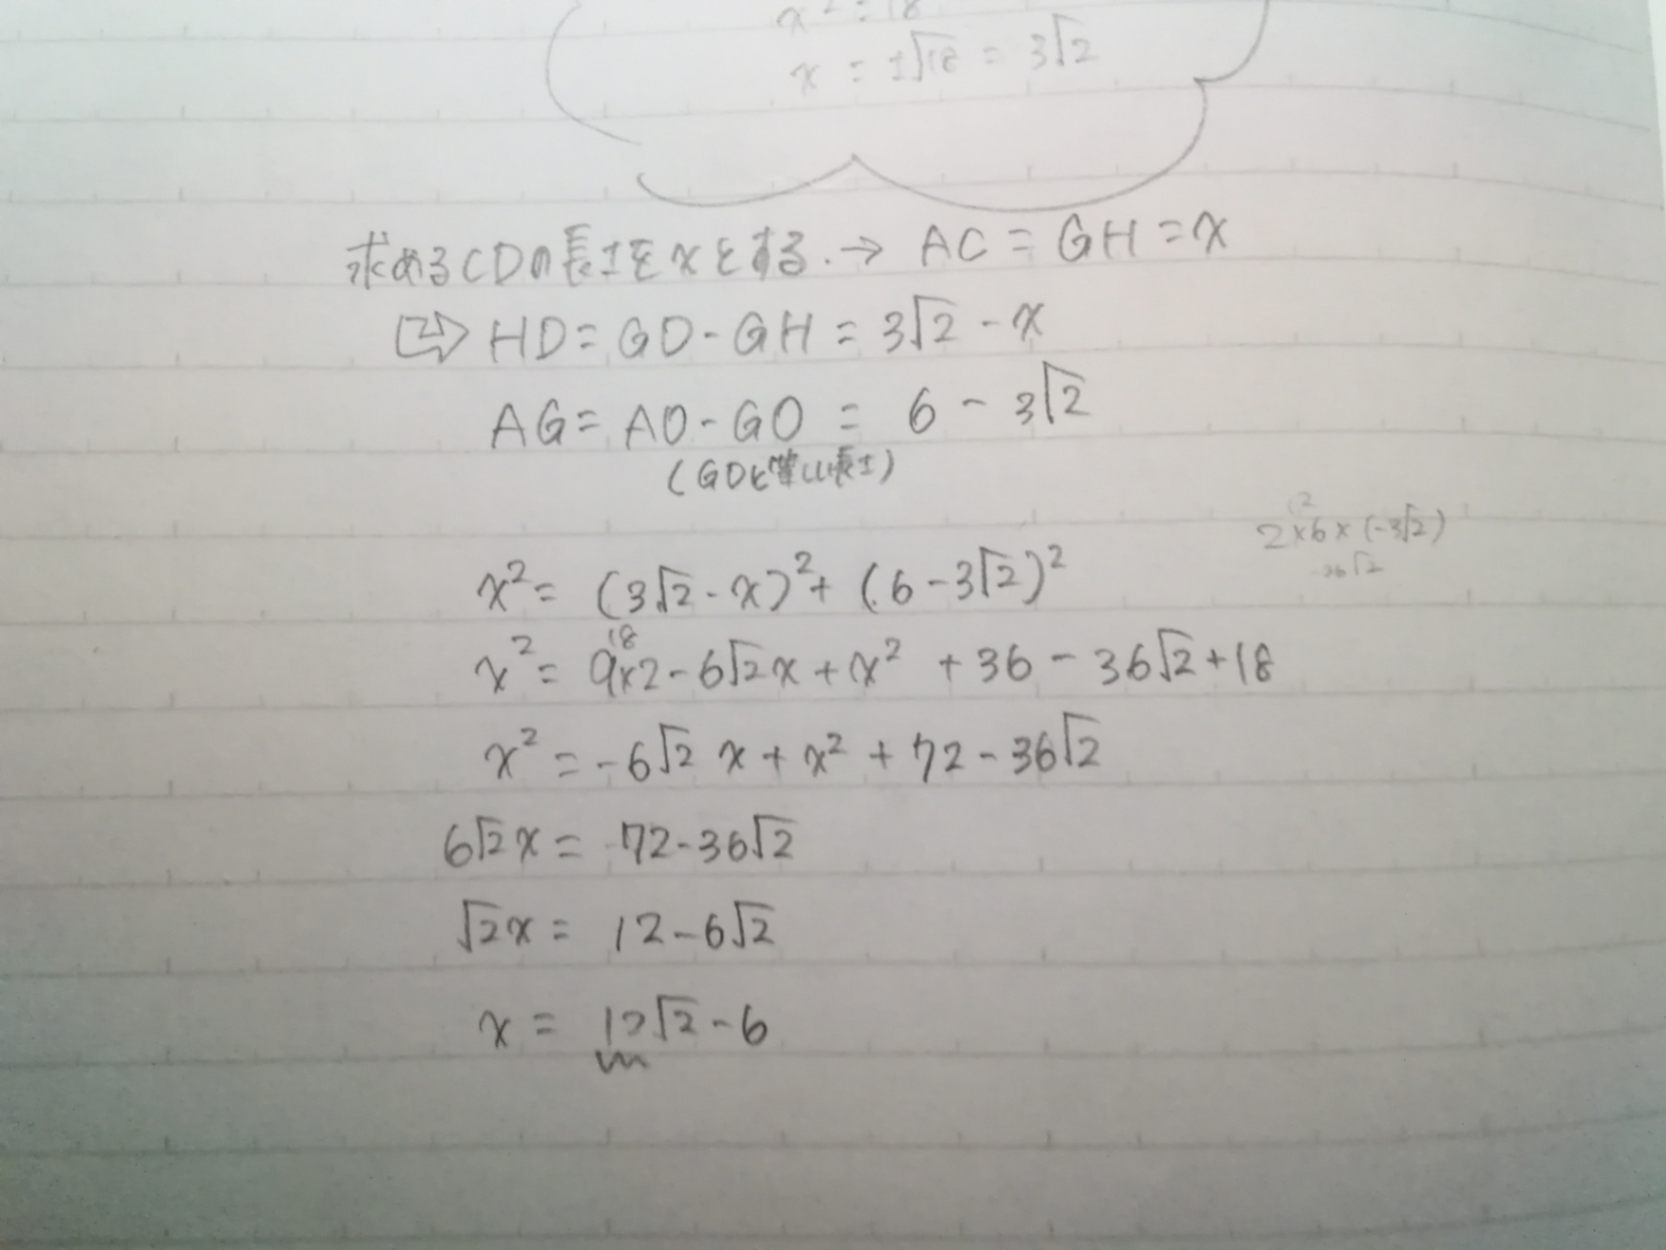 x² = 18
x = ±√18 = 3√2
求めるCDの長さをxとする.→ AC = GH = x
⇨ HD = GD - GH = 3√2 - x
AG = AO - GO = 6 - 3√2
(GDと等しい長さ)
2×6×(-3√2)
12
-36√2
x² = (3√2 - x)² + (6 - 3√2)²
18
x² = 9×2 - 6√2x + x² + 36 - 36√2 + 18
x² = -6√2 x + x² + 72 - 36√2
6√2x = 72 - 36√2
√2x = 12 - 6√2
x = 12√2 - 6